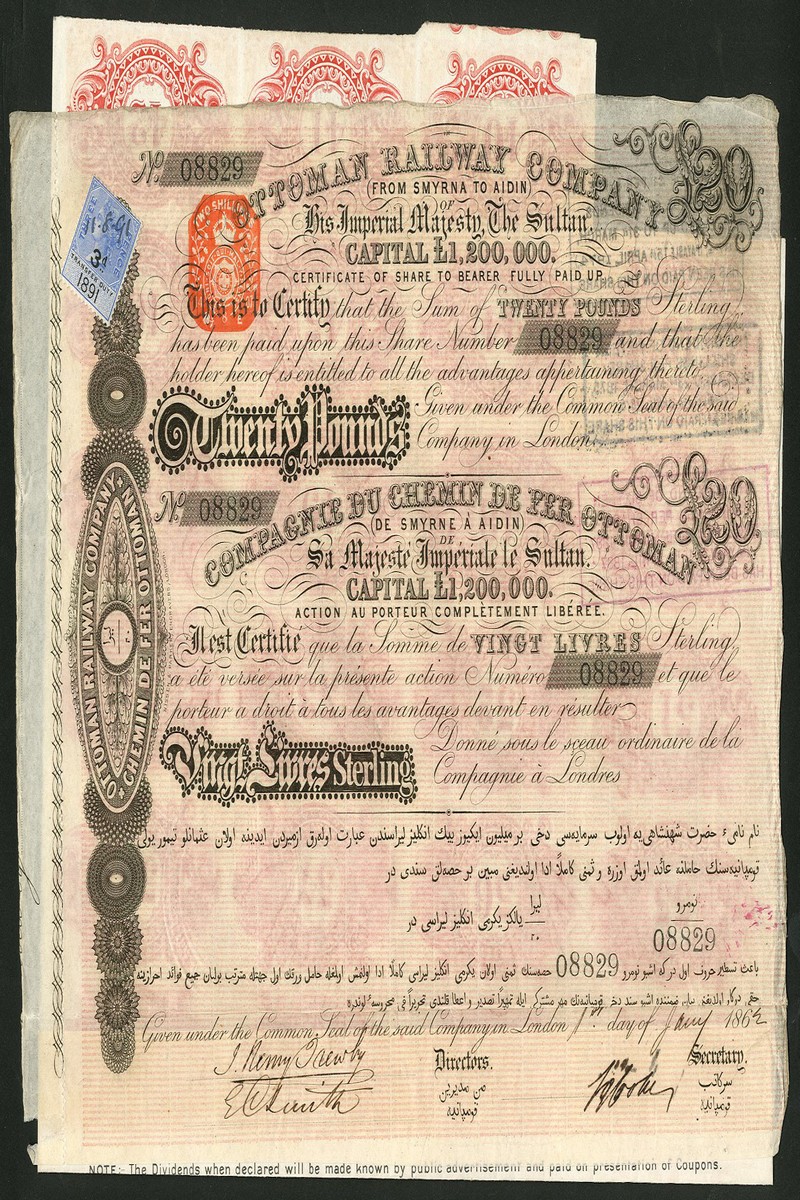 No. 08829
£20
OTTOMAN RAILWAY COMPANY
(FROM SMYRNA TO AIDIN)
OF
His Imperial Majesty, The Sultan.
CAPITAL £1,200,000.
CERTIFICATE OF SHARE TO BEARER FULLY PAID UP.
TWO SHILLINGS
11-8-91
3d
TRANSFER DUTY
1891
This is to Certify that the Sum of TWENTY POUNDS Sterling
has been paid upon this Share Number 08829 and that the
holder hereof is entitled to all the advantages appertaining thereto.
Twenty Pounds
Given under the Common Seal of the said
Company in London.
No. 08829
£20
COMPAGNIE DU CHEMIN DE FER OTTOMAN
(DE SMYRNE À AIDIN)
DE
Sa Majesté Impériale le Sultan.
CAPITAL £1,200,000.
ACTION AU PORTEUR COMPLÈTEMENT LIBÉRÉE.
Il est Certifié que la Somme de VINGT LIVRES Sterling,
a été versée sur la présente action Numéro 08829 et que le
porteur a droit à tous les avantages devant en résulter
Vingt Livres Sterling
Donné sous le sceau ordinaire de la
Compagnie à Londres
OTTOMAN RAILWAY COMPANY.
CHEMIN DE FER OTTOMAN
نام نامیء حضرت شهنشاهی‌یه اولوب سرمایه‌سی دخی بر میلیون ایکیوز بیك انکلیز لیراسندن عبارت اوله‌رق ازمیردن ایدینه اولان عثمانلو تیمور یولی
قومپانیه‌سنك حامله عائد اولمق اوزره و ثمنی کاملاً ادا اولندیغنی مبین بر حصه‌لق سندی در
نومرو
08829
لیرا
٢٠
یالکز یکرمی انکلیز لیراسی در
باعث تسطیر حروف اول درکه اشبو نومرو 08829 حصه‌سنك ثمنی اولان یکرمی انکلیز لیراسی کاملاً ادا اولنمش اولمغله حامل ورقك اول جهتله مترتب بولنان جمیع فوائد احرازینه
حقی درکار اولدیغنی
Given under the Common Seal of the said Company in London 1st. day of Jany 1862
Directors.
Secretary.
من مدیرین
قومپانیه
سرکاتب
قومپانیه
NOTE:- The Dividends when declared will be made known by public advertisement and paid on presentation of Coupons.